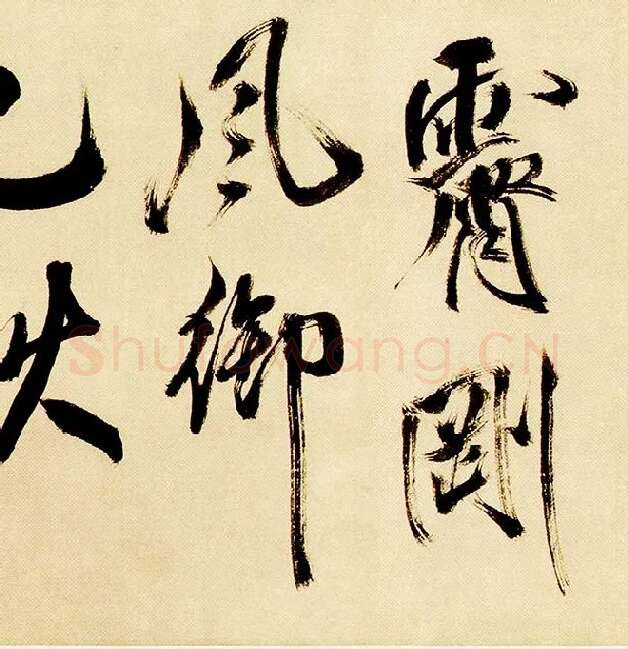 霄剛
風御
Shufawang.CN